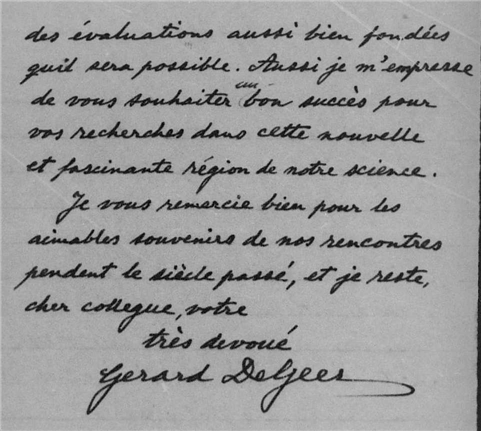 des évaluations aussi bien fondées
quil sera possible. Aussi je m'empresse
de vous souhaiter un bon succès pour
vos recherches dans cette nouvelle
et fascinante région de notre science.
Je vous remercie bien pour les
aimables souvenirs de nos rencontres
pendent le siècle passé, et je reste,
cher collegue, votre
très devoué
Gerard DeGeer